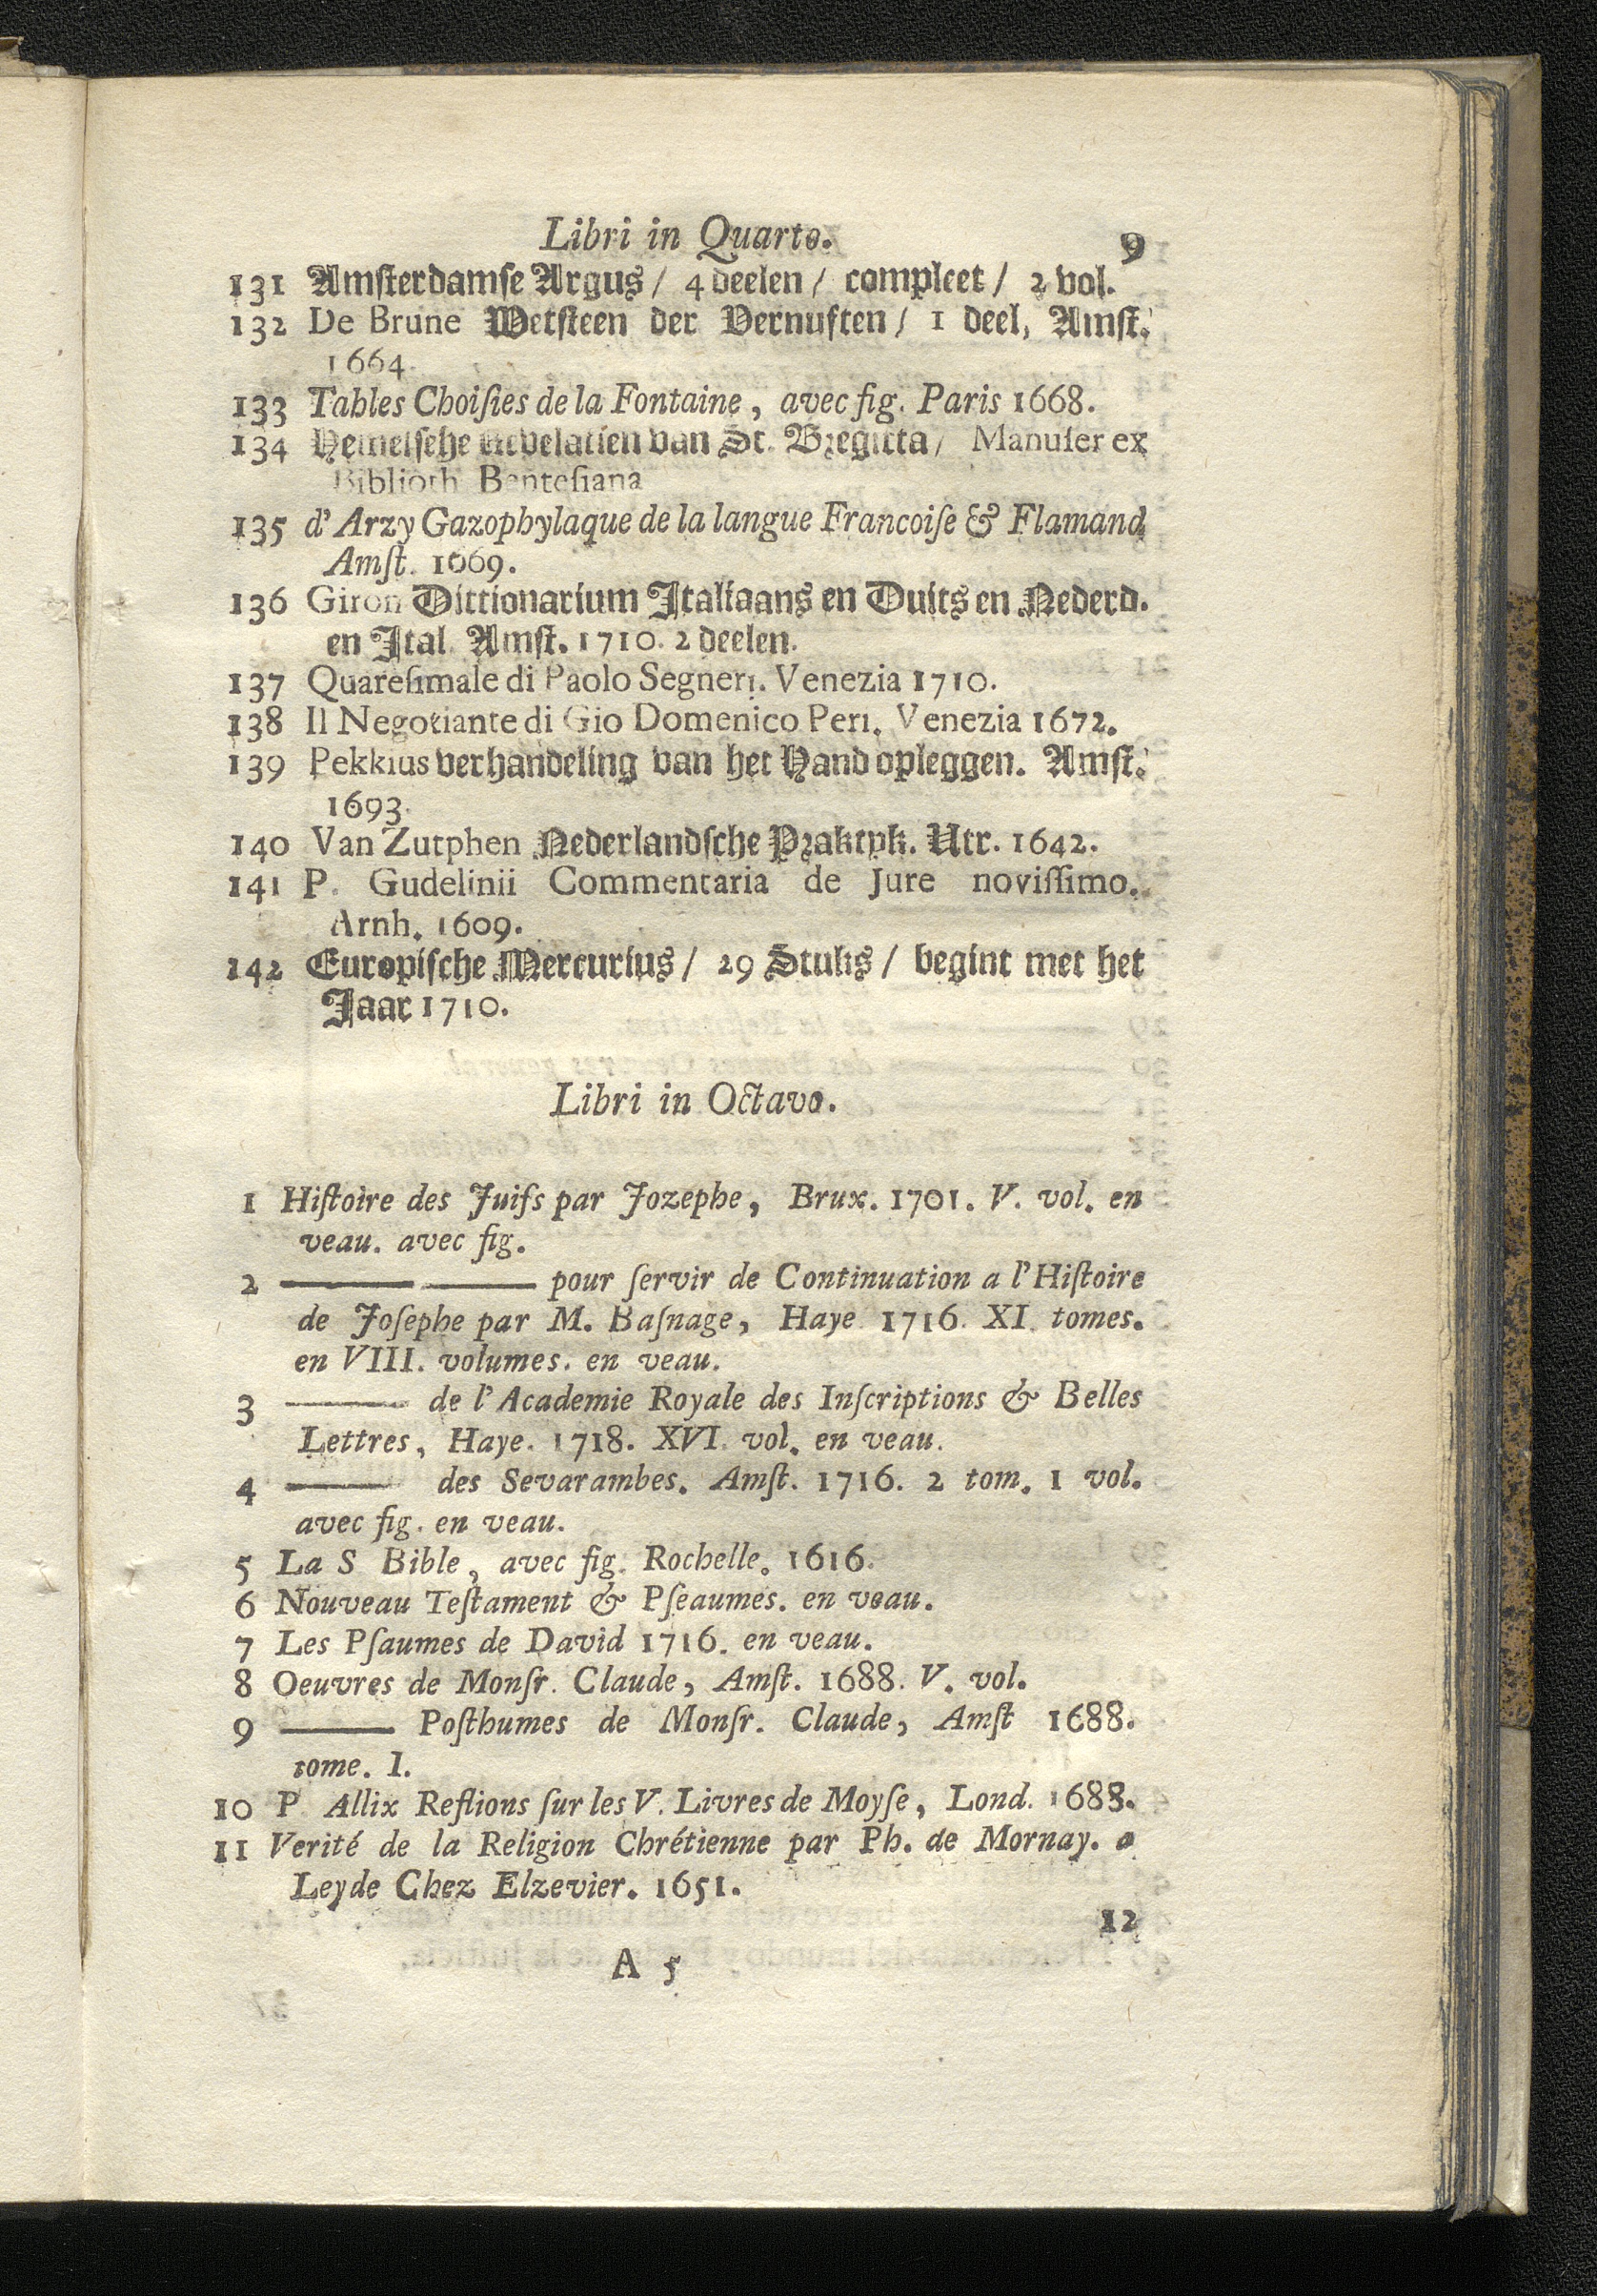 Libri in Quarto. 9
131 Amſterdamſe Argus / 4 deelen / compleet / 2 vol.
132 De Brune Wetſteen der Vernuften / 1 deel, Amſt.
1664.
133 Tables Choiſies de la Fontaine, avec fig. Paris 1668.
134 Hemelſche Revelatien van St. Bregitta / Manuſcr ex
Biblioth Bentesiana
135 d'Arzy Gazophylaque de la langue Francoiſe & Flamand
Amſt. 1669.
136 Giron Dictionarium Italiaans en Duits en Nederd.
en Ital. Amſt. 1710. 2 deelen.
137 Quareſimale di Paolo Segneri. Venezia 1710.
138 Il Negotiante di Gio Domenico Peri. Venezia 1672.
139 Pekkius verhandeling van het Hand opleggen. Amſt.
1693.
140 Van Zutphen Nederlandſche Praktyk. Utr. 1642.
141 P. Gudelinii Commentaria de Jure noviſſimo.
Arnh. 1609.
142 Europiſche Mercurius / 29 Stuks / begint met het
Jaar 1710.
Libri in Octavo.
1 Hiſtoire des Juifs par Jozephe, Brux. 1701. V. vol. en
veau. avec fig.
2 —— —— pour ſervir de Continuation a l'Hiſtoire
de Joſephe par M. Baſnage, Haye 1716. XI. tomes.
en VIII. volumes. en veau.
3 —— de l'Academie Royale des Inſcriptions & Belles
Lettres, Haye. 1718. XVI. vol. en veau.
4 —— des Sevarambes. Amſt. 1716. 2 tom. 1 vol.
avec fig. en veau.
5 La S Bible, avec fig. Rochelle. 1616.
6 Nouveau Teſtament & Pſeaumes. en veau.
7 Les Pſaumes de David 1716. en veau.
8 Oeuvres de Monſr. Claude, Amſt. 1688. V. vol.
9 —— Poſthumes de Monſr. Claude, Amſt 1688.
tome. I.
10 P Allix Reflions ſur les V. Livres de Moyſe, Lond. 1688.
11 Verité de la Religion Chrétienne par Ph. de Mornay. a
Leyde Chez Elzevier. 1651.
12
A 5